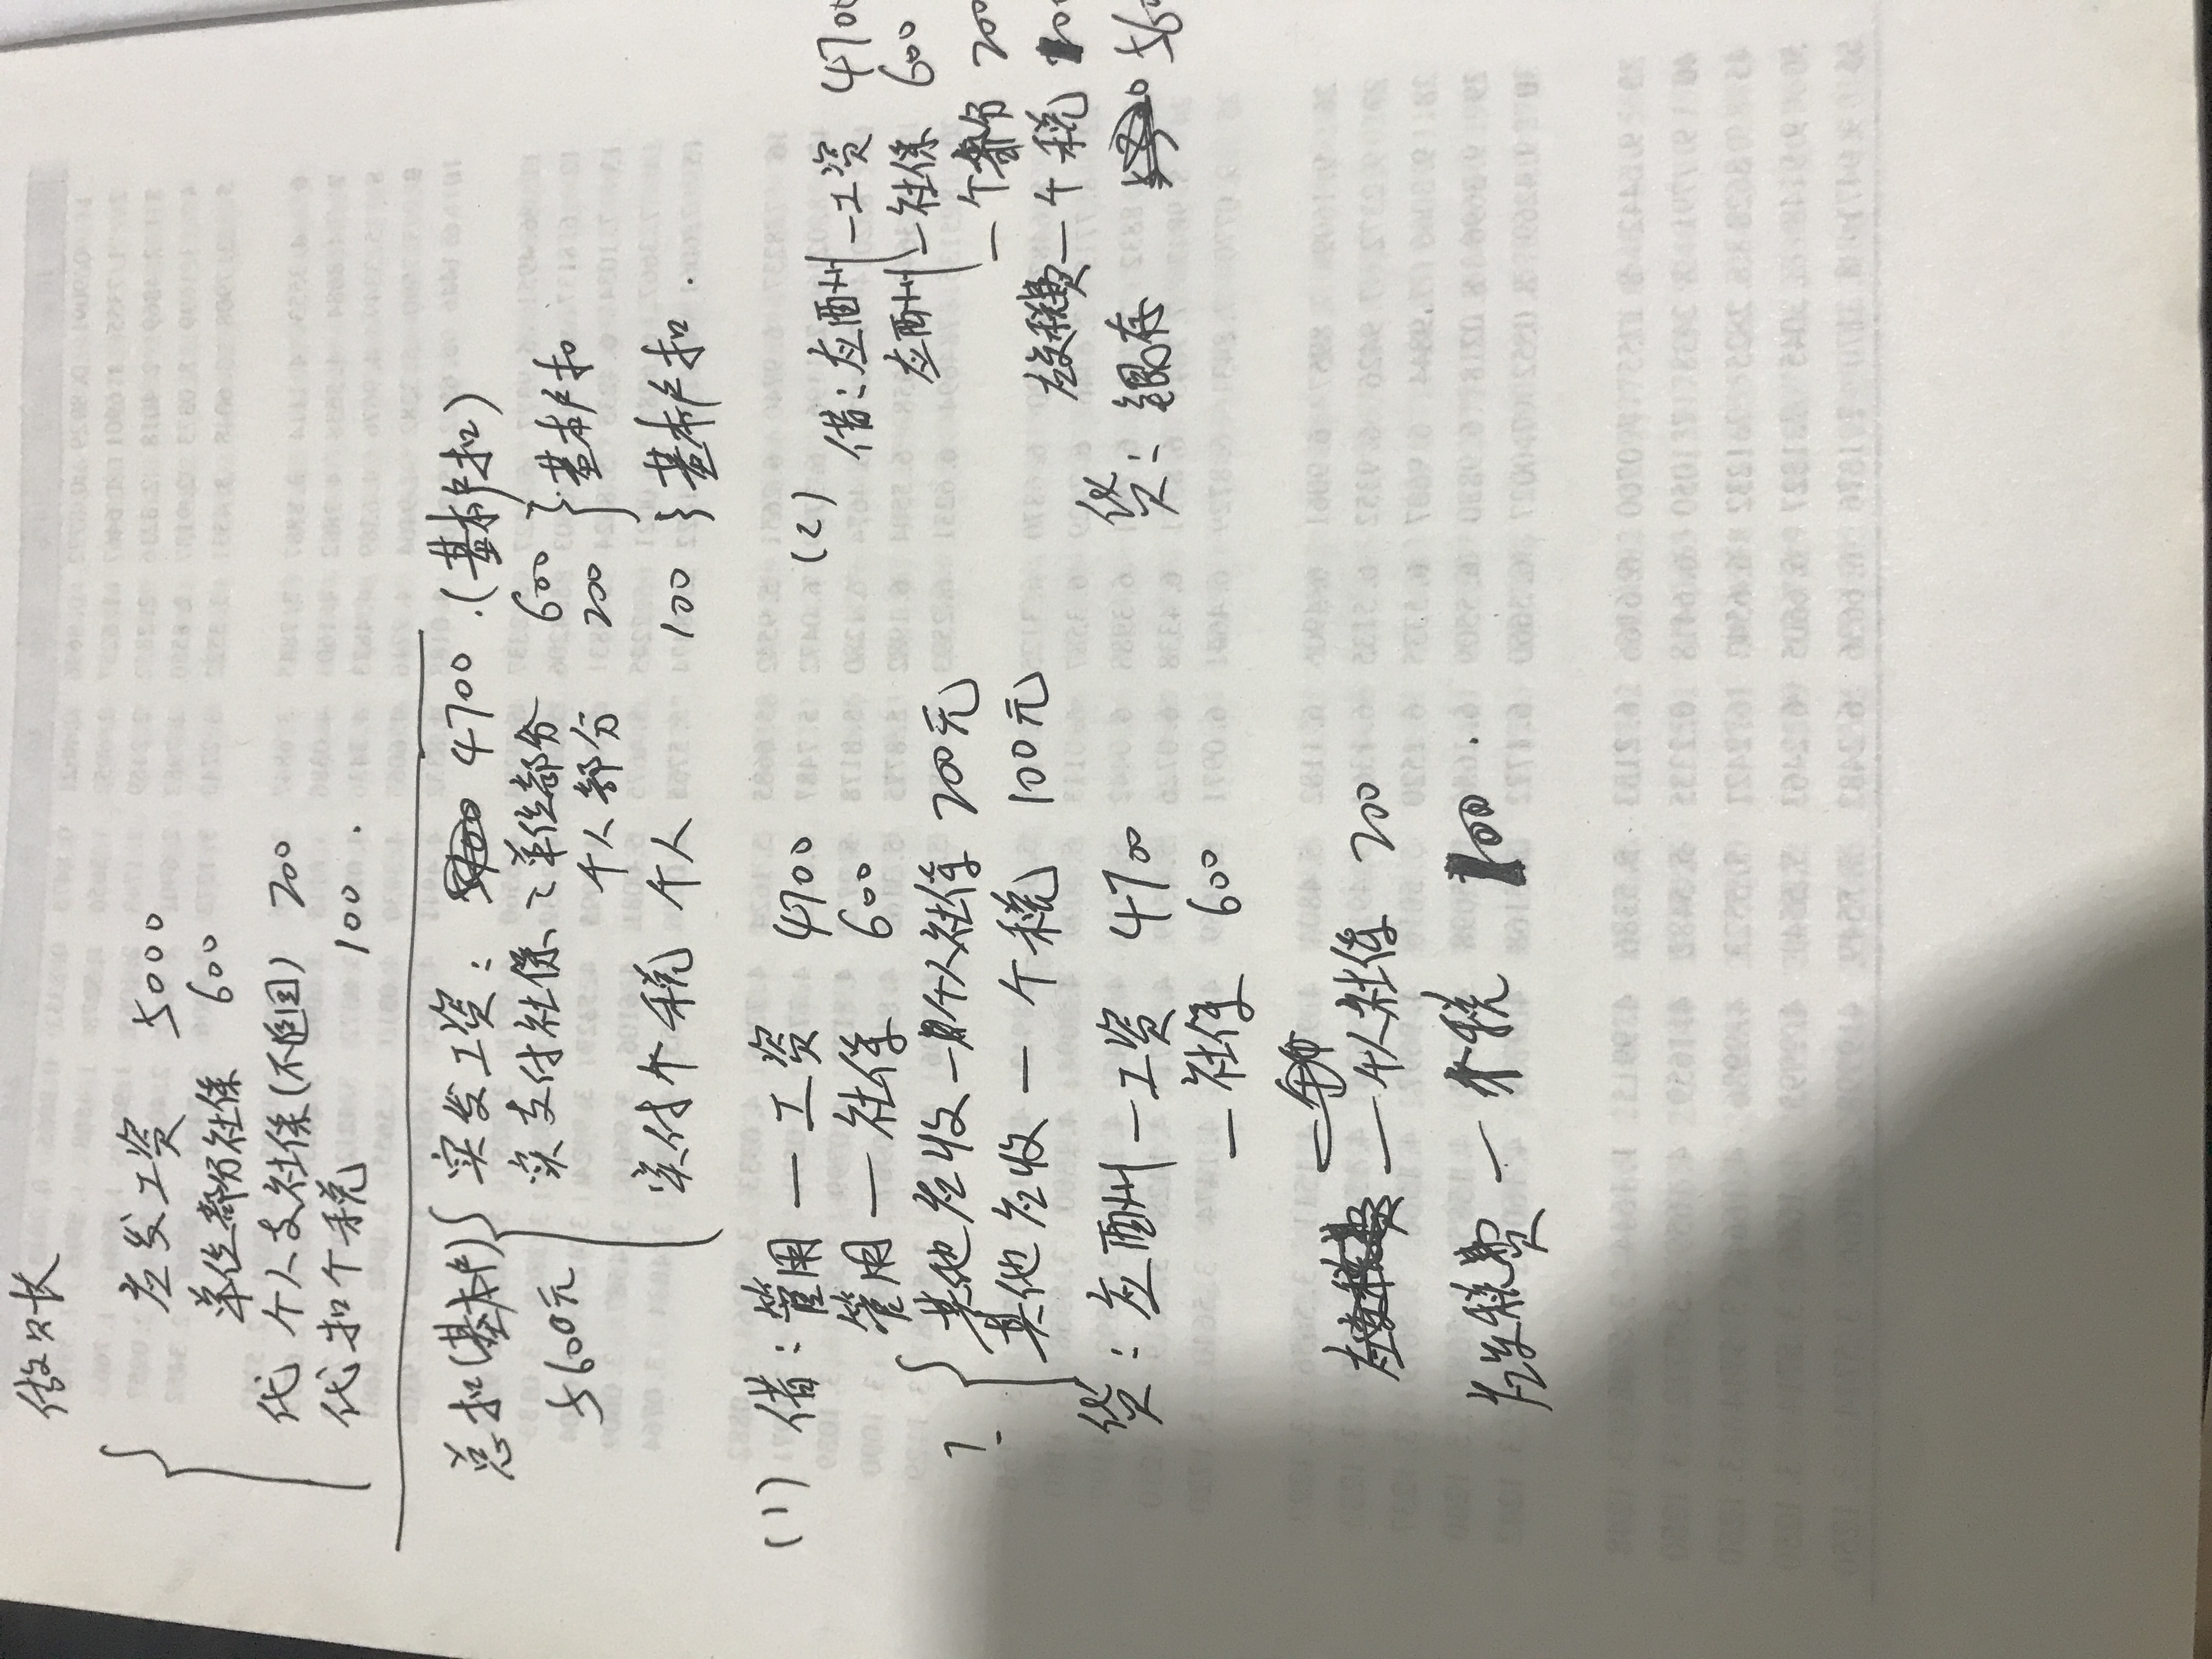 做账
应发工资 5000
单位部分社保 600
代 个人支社保(不退回) 200
代扣个税 100.
总扣(基本户) 实发工资: 4700.(基本户扣)
5600元 实支付社保、单位部分 600 }基本户扣
个人部分 200
实付个税 个人 100 } 基本户扣.
(1) 借:管用 — 工资 4700
管用 — 社保 600
其他应收 — 个人社保 200元
?
其他应收 — 个税 100元
贷: 应酬 — 工资 4700
— 社保 600
— 个人社保 200
应交税费 — 个税 100.
(2) 借:应酬 — 工资 4700
应酬 — 社保 600
— 个部 200
应交税费 — 个税
贷: 银存